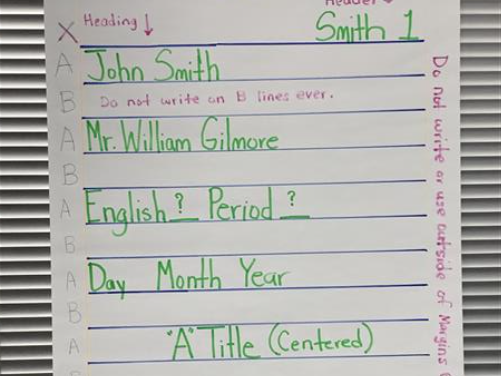 Header
X Heading ↓ Smith 1
A John Smith
B Do not write on B lines ever.
A Mr. William Gilmore
B
A English ? Period ?
B
A Day Month Year
B
A "A" Title (Centered)
Do not write or use outside of Margins